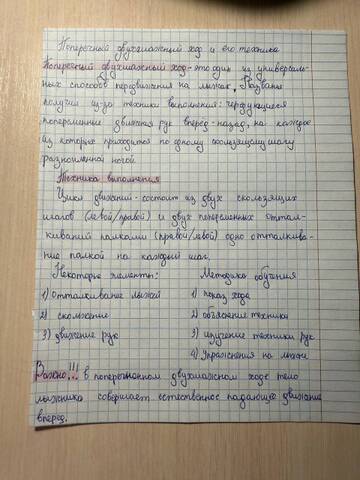 Попеременный двухшажный ход и его техника
Попеременный двухшажный ход - это один из универсаль-
ных способов передвижения на лыжах. Название
получил из-за техники выполнения: чередующиеся
попеременные движения рук вперед-назад, на каждое
из которых приходится по одному скользящему шагу
разноименной ногой.
Техника выполнения
Цикл движений - состоит из двух скользящих
шагов (левой/правой) и двух попеременных оттал-
киваний палками (правой/левой) одно отталкива-
ние палкой на каждый шаг.
Некоторые элементы: Методика обучения
1) Отталкивание лыжей 1) показ хода
2) скольжение 2) объяснение техники
3) движение рук 3) изучение техники рук
4) Упражнения на лыжи
Важно!!! в попеременном двухшажном ходе тело
лыжника совершает естественное падающее движение
вперед.